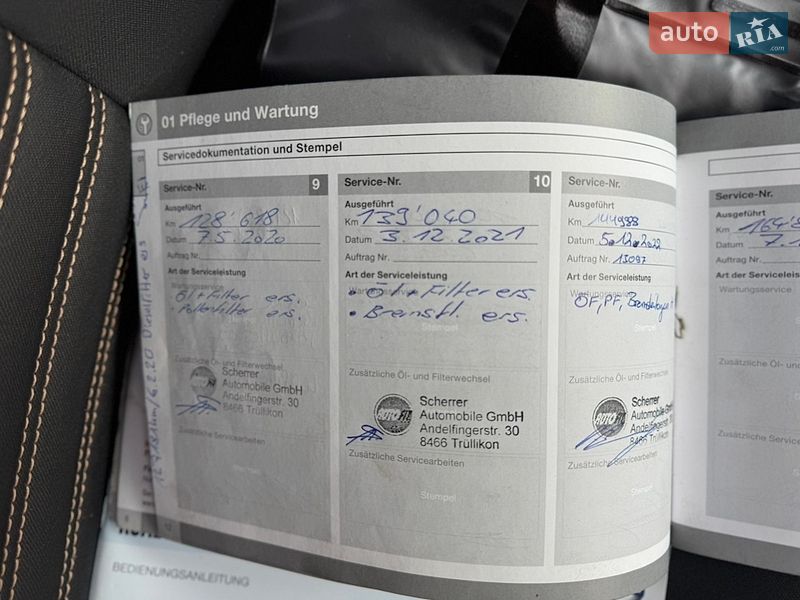 auto RIA.com
01 Pflege und Wartung
Servicedokumentation und Stempel
Service-Nr. 9
Ausgeführt
Km 128'618
Datum 7.5.2020
Auftrag Nr.
Art der Serviceleistung
Wartungsservice
Öl + Filter ers.
Pollenfilter ers.
Zusätzliche Öl- und Filterwechsel
Scherrer
Automobile GmbH
Andelfingerstr. 30
8466 Trüllikon
Zusätzliche Servicearbeiten
12
Service-Nr. 10
Ausgeführt
Km 139'040
Datum 3.12.2021
Auftrag Nr.
Art der Serviceleistung
• Öl + Filter ers.
• Bremsfl. ers.
Stempel
Zusätzliche Öl- und Filterwechsel
Scherrer
Automobile GmbH
Andelfingerstr. 30
8466 Trüllikon
Zusätzliche Servicearbeiten
Stempel
Service-Nr.
Ausgeführt
Km
Datum 5.12.2022
Auftrag Nr. 13097
Art der Serviceleistung
Wartungsservice
ÖF, PF,
Stempel
Zusätzliche Öl- und Filterwechsel
Scherrer
Automobile
Andelfingerstr.
8466 Trüllikon
Zusätzliche Servicearbeiten
Stempel
Service-Nr.
Ausgeführt
Km
Datum
Auftrag Nr.
Art der Serviceleistung
Wartungsservice
Zusätzliche Öl- und
Zusätzliche
Dieselfilter ers
BEDIENUNGSANLEITUNG